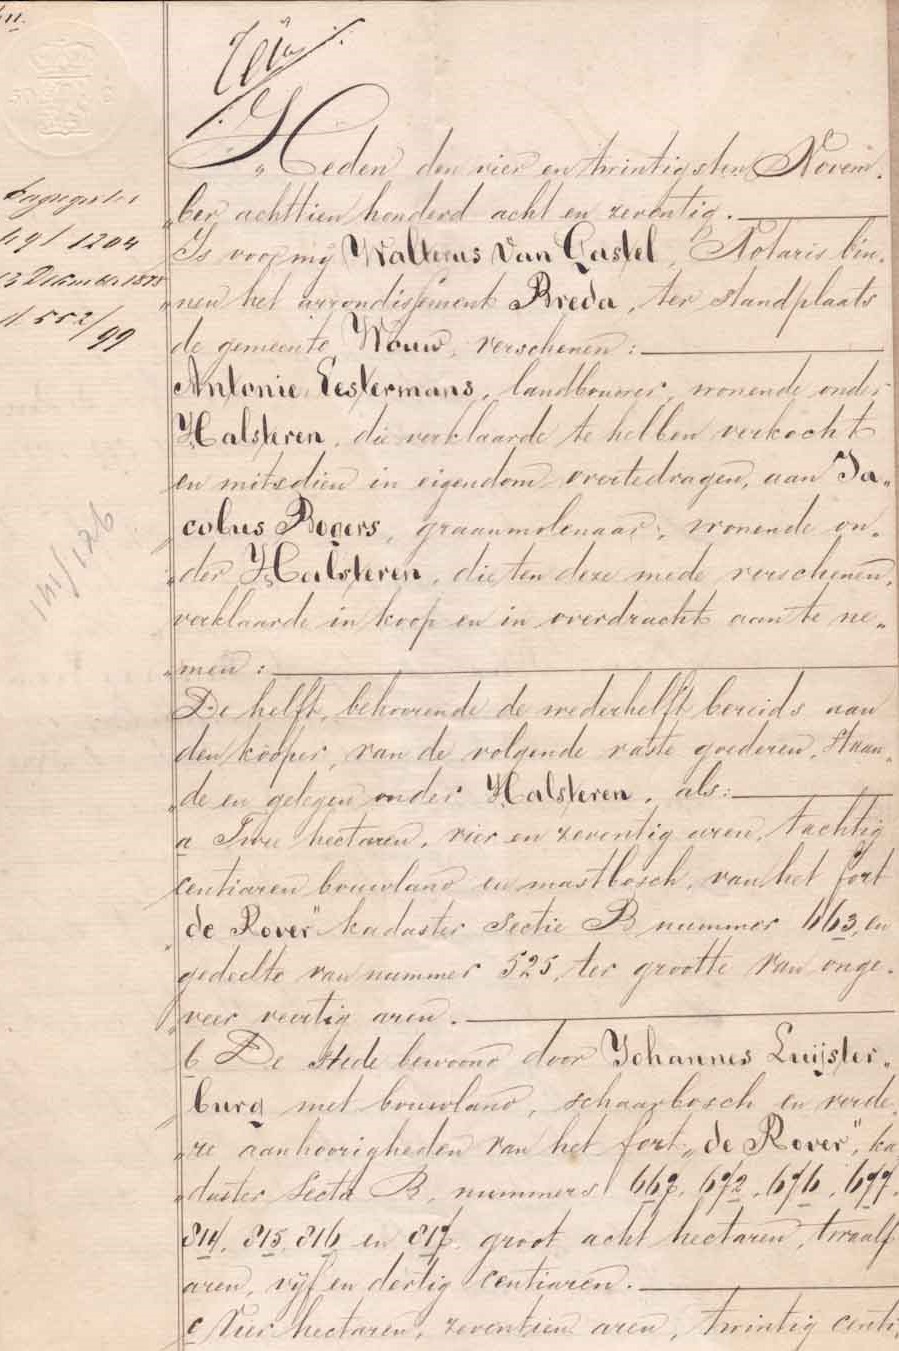 Heden den vier en twintigsten Novem„
„ber achttien honderd acht en zeventig.
Is voor mij Walterus Van Gastel, Notaris bin„
„nen het arrondissement Breda, ter standplaats
de gemeente Wouw, verschenen:
Antonie Eestermans, landbouwer, wonende onder
Halsteren, die verklaarde te hebben verkocht
en mitsdien in eigendom overtedragen, aan Ja„
cobus Rogers, graanmolenaar, wonende on„
„der Halsteren, die ten deze mede verschenen,
verklaarde in koop en in overdracht aan te ne„
„men:
De helft, behoorende de wederhelft bereids aan
den kooper, van de volgende vaste goederen, staan„
„de en gelegen onder Halsteren, als:
a Twee hectaren, vier en zeventig aren, tachtig
centiaren bouwland en mastbosch, van het fort
„de Rover" kadaster Sectie B nummer 663, en
gedeelte van nummer 525, ter grootte van onge„
„veer veertig aren.
b De stede bewoond door Johannes Luijster„
„burg met bouwland, schaarbosch en verde„
„re aanhoorigheden van het fort „de Rover", ka„
„daster Sectie B, nummers 667, 672, 676, 677,
814, 815, 816 en 817, groot acht hectaren, twaalf
aren, vijf en dertig centiaren.
c Vier hectaren, zeventien aren, twintig centi„
Dagregister
1204
13 December 1878
d. 552/99
141/126